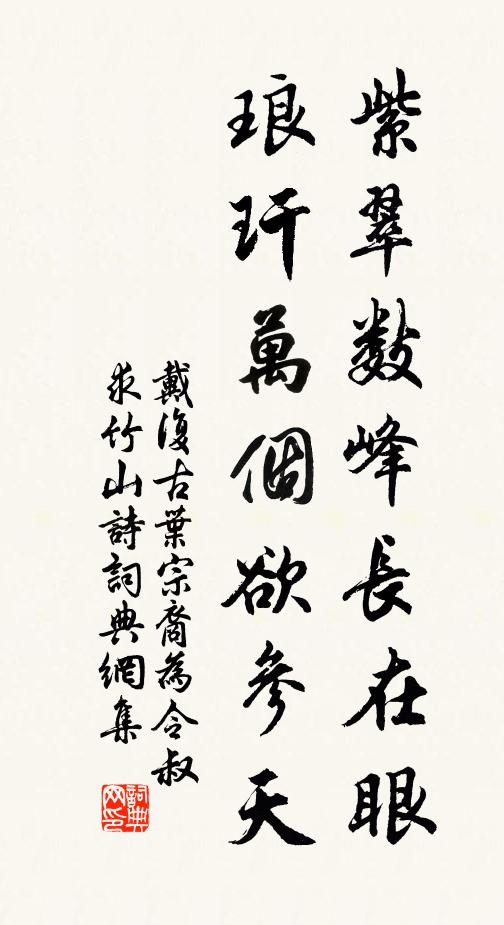 紫翠数峰長在眼
琅玕萬個欲參天
戴復古葉宗裔為令叔
求竹山詩詞典網集
詞典
网印